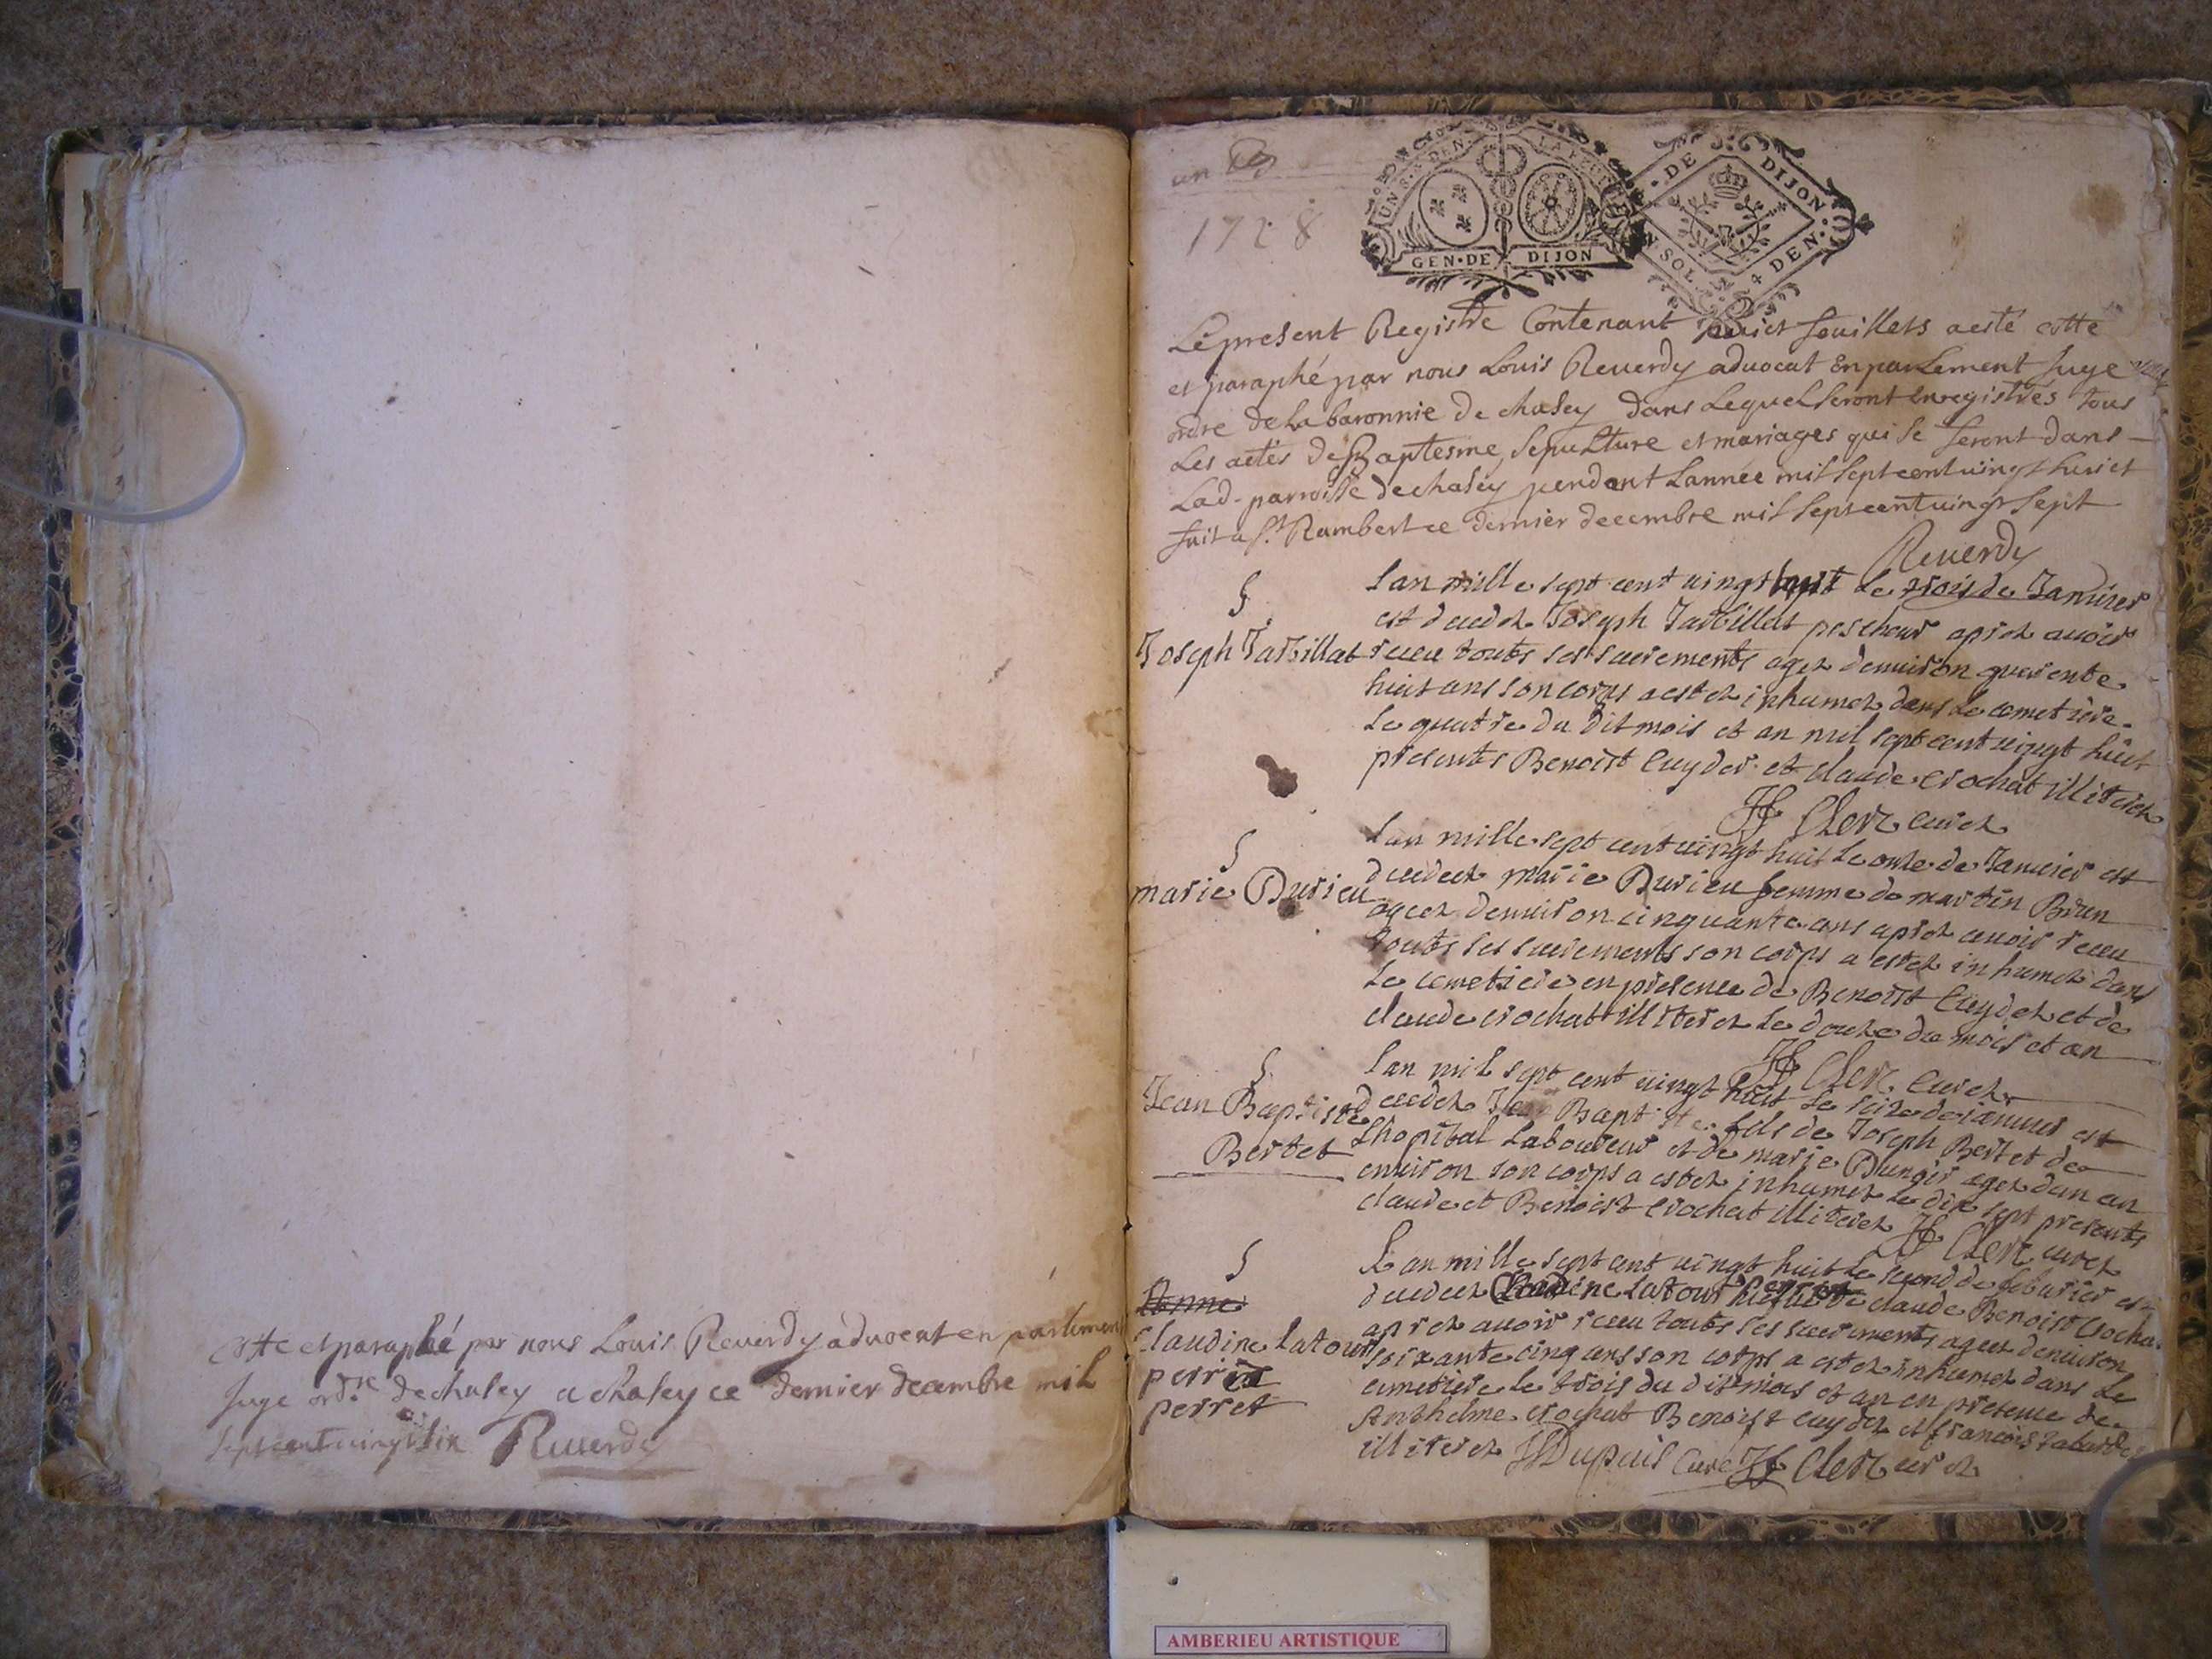 cotte et paraphé par nous Louis Reverdy advocat en parlement
Juge ord.re de chasey a chasey ce dernier decembre mil
sept cent vingt six Reverdy
un
1728
UN S. 4 DEN. LA FEUILLE
GEN·DE DIJON
G. DE DIJON
UN SOL 4 DEN.
Le present Registre Contenant huict feuillets a esté cotté
et paraphé par nous Louis Reverdy advocat En parlement Juge
ordre de La baronnie de chasey dans Lequel seront Enregistrés tous
Les actes de Baptesme, Sepulture et mariages qui se feront dans
Lad. parroisse de chasey pendant Lannée mil sept cent vingt huict
fait a St Rambert ce dernier decembre mil sept cent vingt sept
Reverdy
Joseph Tarbillat
lan mille sept cent vingt huit le trois de Janvier
est decedez Joseph Tarbillat pescheur aprez avoir
receu touts ses sacrements agez denviron quarente
huit ans son corps a estez inhumez dans le cemetiere
le quatre du dit mois et an mil sept cent vingt huit
presents Benoist Cuydez et claude Crochat illiterez
Clerc curez
marie Durieu
lan mille sept cent vingt huit le onze de Janvier est
decedeez marie Durieu femme de martin Brun
ageez denviron cinquante ans aprez avoir receu
touts ses sacrements son corps a estez inhumez dans
le cemetiere en presence de Benoist Cuydez et de
claude crochat illiterez le douze du mois et an
Clerc Curez
Jean Baptiste
Bertet
lan mil sept cent vingt huit le seize de janvier est
decedez Jean Baptiste fils de Joseph Bertet de
Lhopital Laboureur et de marie agez dun an
environ son corps a estez inhumez le dix sept presents
claude et Benoist Crochat illiterez Clerc curez
Anne
Claudine Latour
perrin
perret
Lan mille sept cent vingt huit le second de febvrier est
decedeez Claudine Latour claude Benoist Crochat
aprez avoir receu touts ses sacrements ageez denviron
soixante cinq ans son corps a estez inhumez dans le
cimetiere le trois du dit mois et an en presence de
Anthelme crochat Benoist cuydez et francois
illiterez Dupuis Curé Clerc curez
AMBERIEU ARTISTIQUE